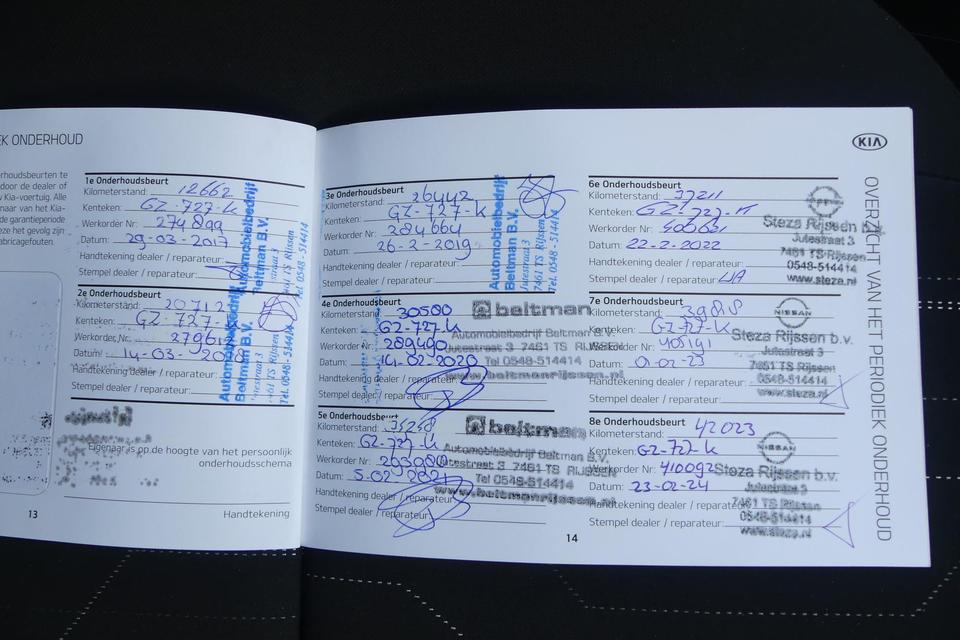 EK ONDERHOUD
rhoudsbeurten te
door de dealer of
Kia-voertuig. Alle
naar van het Kia-
de garantieperiode
eze het gevolg zijn
abricagefouten.
1e Onderhoudsbeurt
Kilometerstand: 12662
Kenteken: GZ-727-K
Werkorder Nr: 274899
Datum: 29-03-2017
Handtekening dealer / reparateur:
Stempel dealer / reparateur:
Automobielbedrijf
Beltman B.V.
Tel. 0548 - 514414
2e Onderhoudsbeurt
Kilometerstand:
Kenteken: GZ-727-K
Werkorder Nr:
Datum: 14-03-
Handtekening dealer / reparateur:
Stempel dealer / reparateur:
Automobielbedrijf
Beltman B.V.
Jutestraat 3
7461 TS Rijssen
Tel. 0548-514414
Eigenaar is op de hoogte van het persoonlijk
onderhoudsschema
13
Handtekening
3e Onderhoudsbeurt
Kilometerstand: 26442
Kenteken: GZ-727-K
Werkorder Nr: 284664
Datum: 26-2-2019
Handtekening dealer / reparateur:
Stempel dealer / reparateur:
Automobielbedrijf
Beltman B.V.
Jutestraat 3
7461 TS Rijssen
Tel. 0548 - 514414
4e Onderhoudsbeurt
Kilometerstand: 30500
Kenteken: GZ-727-K
Werkorder Nr: 289490
Datum: 14-02-2020
Handtekening dealer / reparateur:
Stempel dealer / reparateur:
beltman
Automobielbedrijf Beltman B.V.
Jutestraat 3 7461 TS RIJSSEN
Tel 0548-514414
www.beltmanrijssen.nl
5e Onderhoudsbeurt
Kilometerstand: 35258
Kenteken: GZ-727-K
Werkorder Nr:
Datum: 5-02-2021
Handtekening dealer / reparateur:
Stempel dealer / reparateur:
beltman
Automobielbedrijf Beltman B.V.
Jutestraat 3 7461 TS RIJSSEN
Tel 0548-514414
www.beltmanrijssen.nl
14
KIA
OVERZICHT VAN HET PERIODIEK ONDERHOUD
6e Onderhoudsbeurt
Kilometerstand: 37211
Kenteken: GZ-727-K
Werkorder Nr:
Datum: 22-2-2022
Handtekening dealer / reparateur:
Stempel dealer / reparateur:
Steza Rijssen b.v.
Jutestraat 3
7461 TS Rijssen
0548-514414
www.steza.nl
7e Onderhoudsbeurt
Kilometerstand:
Kenteken: GZ-727-K
Werkorder Nr: 405191
Datum: 01-02-23
Handtekening dealer / reparateur:
Stempel dealer / reparateur:
NISSAN
Steza Rijssen b.v.
Jutestraat 3
7461 TS Rijssen
0548-514414
www.steza.nl
8e Onderhoudsbeurt
Kilometerstand: 42023
Kenteken: GZ-727-K
Werkorder Nr: 410092
Datum: 23-02-24
Handtekening dealer / reparateur:
Stempel dealer / reparateur:
NISSAN
Steza Rijssen b.v.
Jutestraat 3
7461 TS Rijssen
0548-514414
www.steza.nl